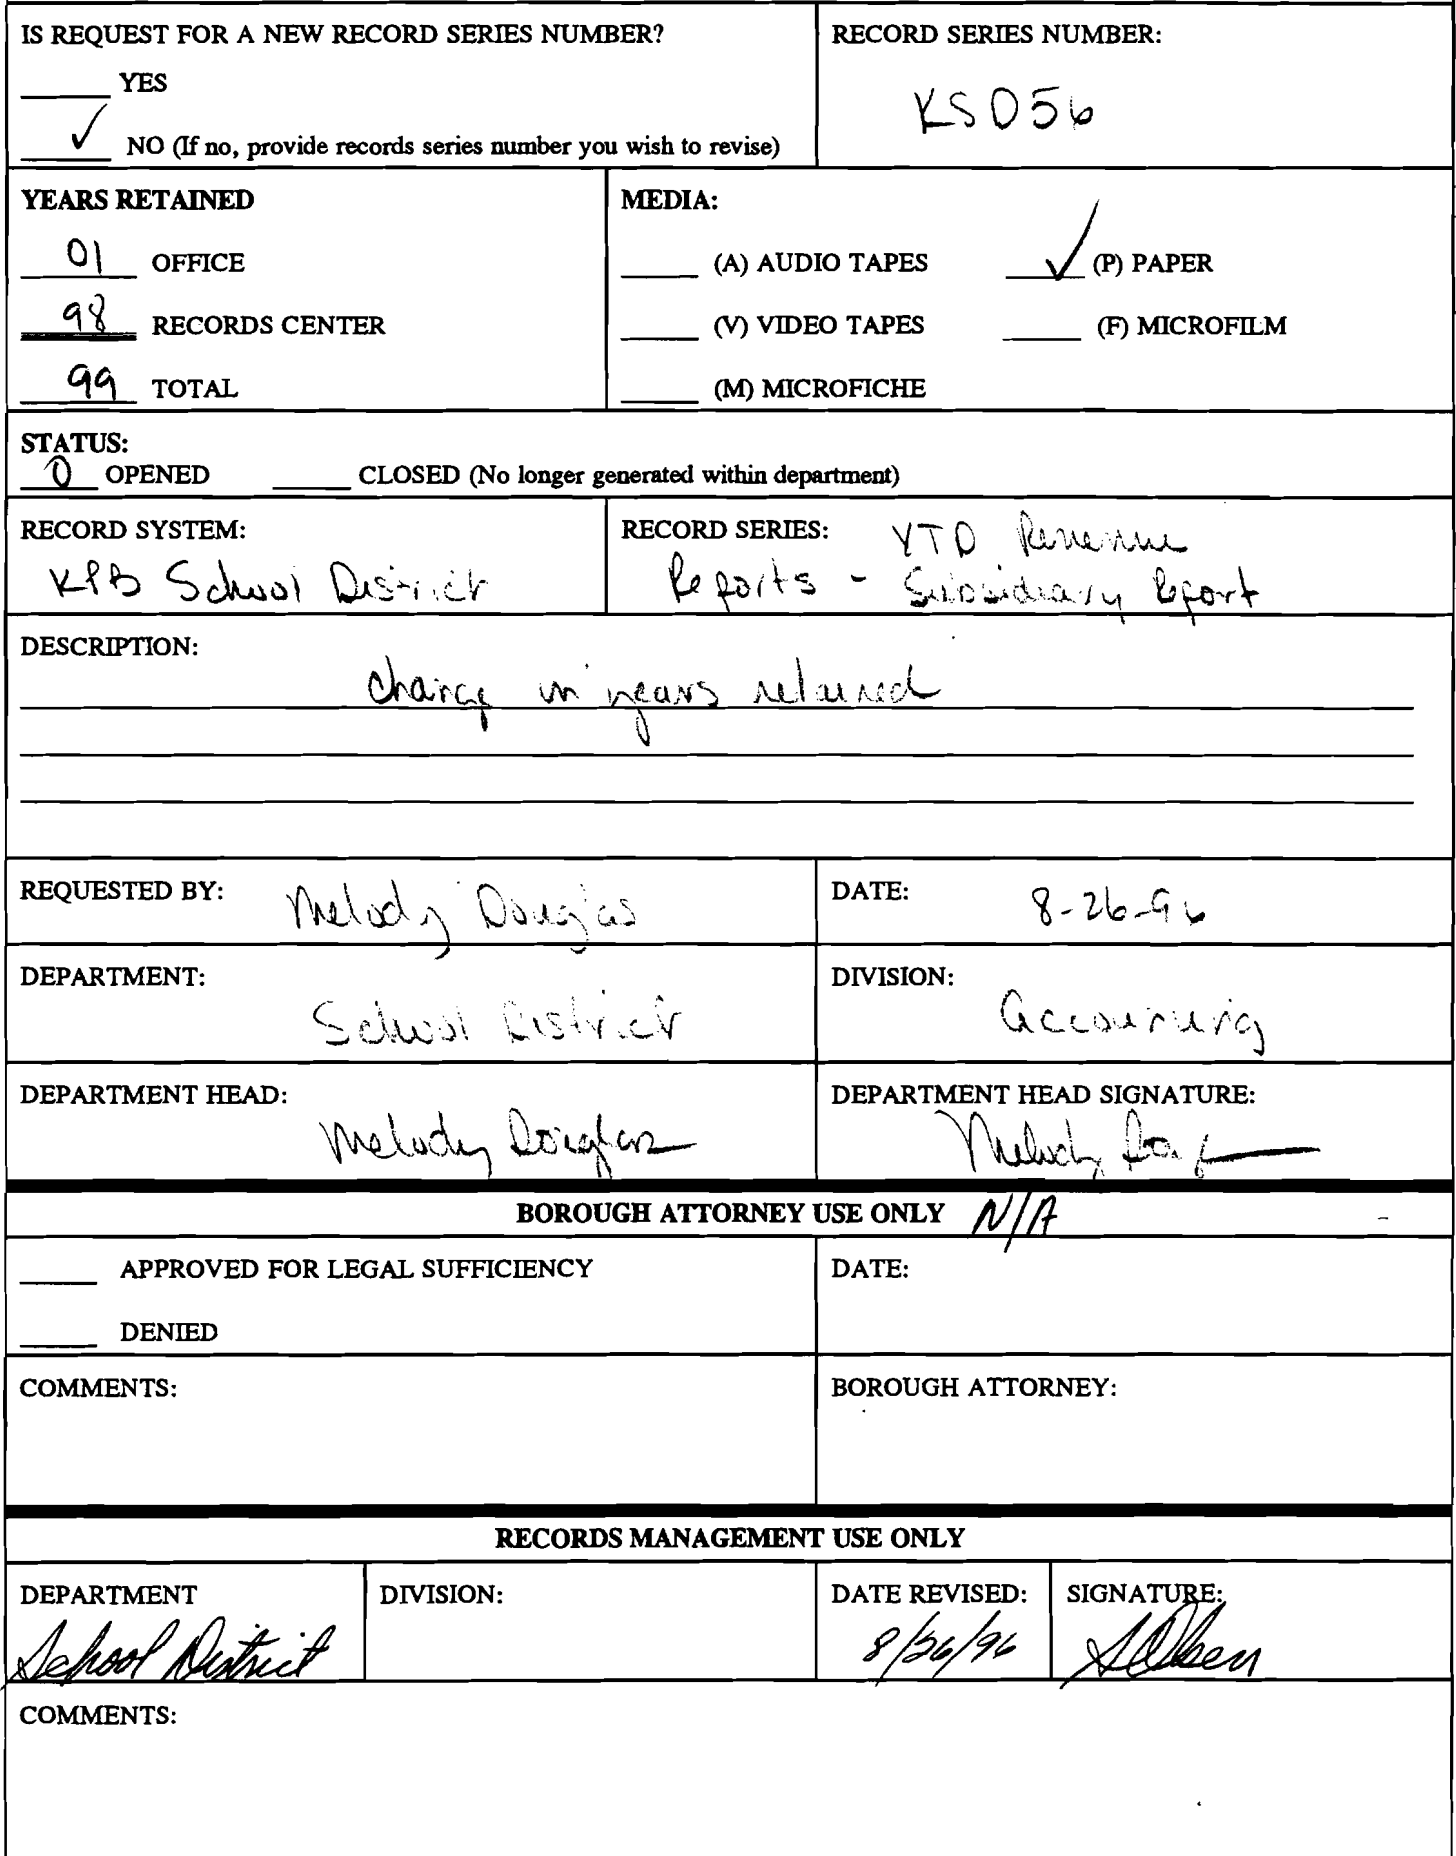 IS REQUEST FOR A NEW RECORD SERIES NUMBER?
YES
✓ NO (If no, provide records series number you wish to revise)
RECORD SERIES NUMBER:
KSD56
YEARS RETAINED
01 OFFICE
98 RECORDS CENTER
99 TOTAL
MEDIA:
(A) AUDIO TAPES ✓ (P) PAPER
(V) VIDEO TAPES (F) MICROFILM
(M) MICROFICHE
STATUS:
O OPENED CLOSED (No longer generated within department)
RECORD SYSTEM:
KPB School District
RECORD SERIES: YTD Revenue
Reports - Subsidiary Report
DESCRIPTION:
change in years retained
REQUESTED BY: Melody Douglas
DATE: 8-26-96
DEPARTMENT:
School District
DIVISION:
Accounting
DEPARTMENT HEAD:
Melody Douglas
DEPARTMENT HEAD SIGNATURE:
Melody Doug
BOROUGH ATTORNEY USE ONLY N/A
APPROVED FOR LEGAL SUFFICIENCY
DENIED
DATE:
COMMENTS:
BOROUGH ATTORNEY:
RECORDS MANAGEMENT USE ONLY
DEPARTMENT
School District
DIVISION:
DATE REVISED:
8/26/96
SIGNATURE:
SOlsen
COMMENTS: